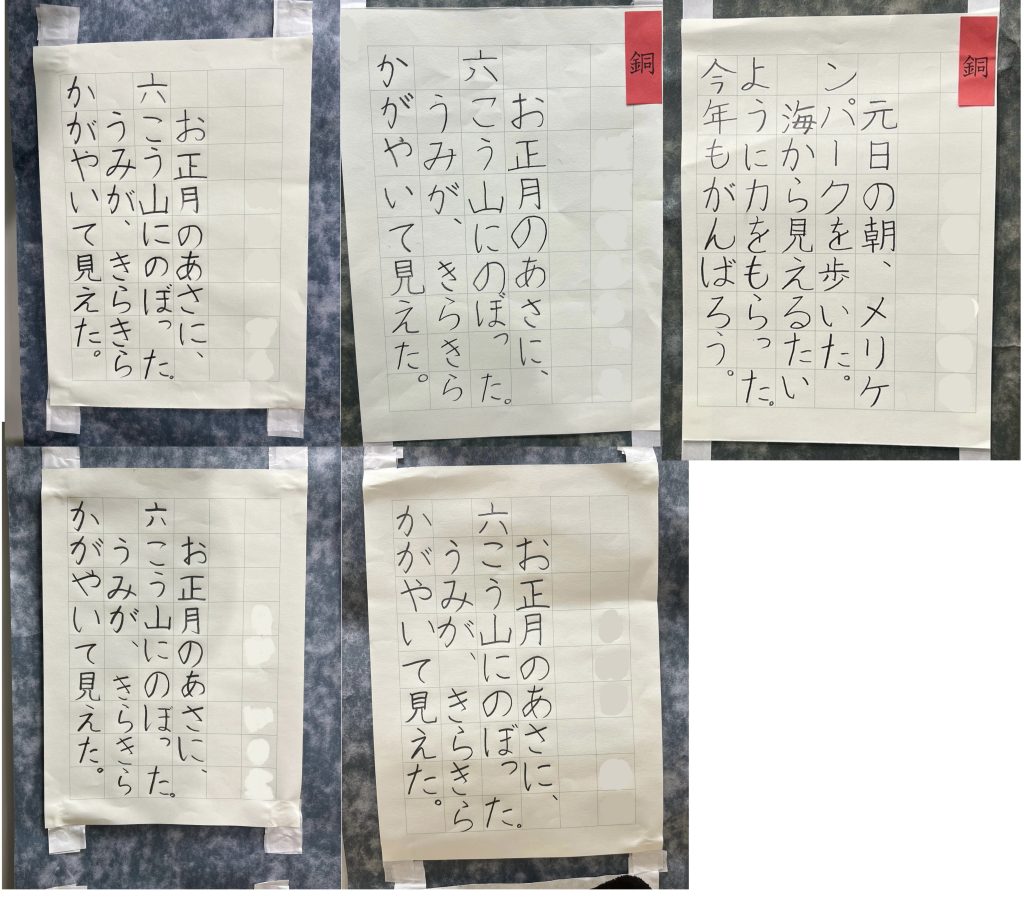 お正月のあさに、
六こう山にのぼった。
うみが、きらきら
かがやいて見えた。
銅
お正月のあさに、
六こう山にのぼった。
うみが、きらきら
かがやいて見えた。
銅
元日の朝、メリケ
ンパークを歩いた。
海から見えるたい
ように力をもらった。
今年もがんばろう。
お正月のあさに、
六こう山にのぼった。
うみが、きらきら
かがやいて見えた。
お正月のあさに、
六こう山にのぼった。
うみが、きらきら
かがやいて見えた。